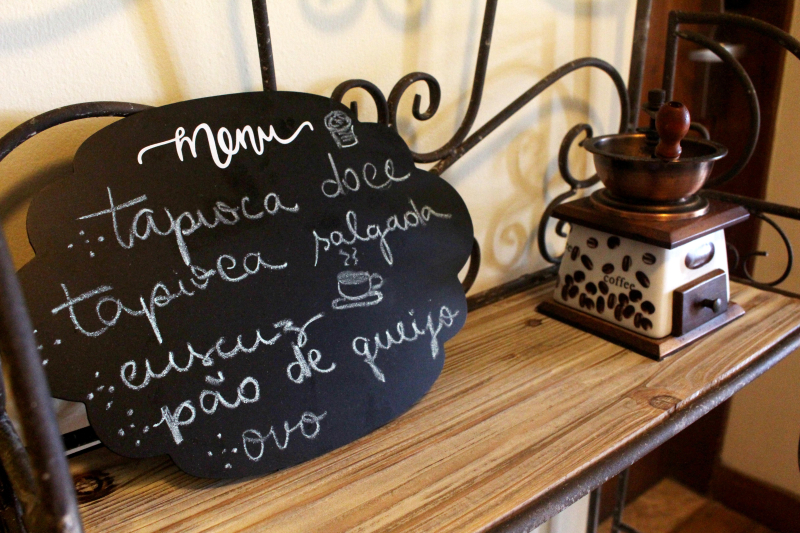 menu
tapioca doce
tapioca salgada
cuscuz
pão de queijo
ovo
coffee